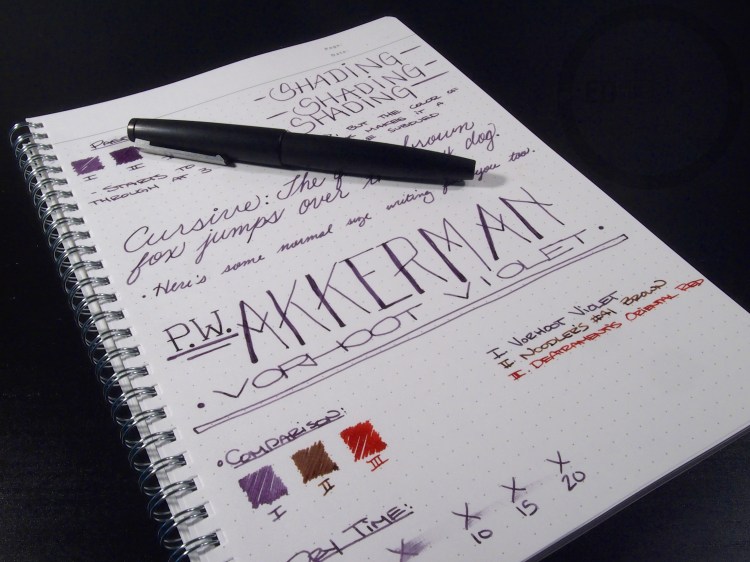 Page
Date
-SHADING-
-SHADING-
SHADING
BUT THE COLOR OF
MAKES IT A
SUBDUED
I II
- STARTS TO
THROUGH AT 3
Cursive: The brown
fox jumps over dog.
• Here's some normal size writing for you too.
P.W. AKKERMAN
• VORHOOT VIOLET •
I VORHOOT VIOLET
II NOODLER'S #41 BROWN
III. DEATRAMENTS ORIENTAL RED
• COMPARISON:
I II III
DRY TIME:
X X X X
10 15 20